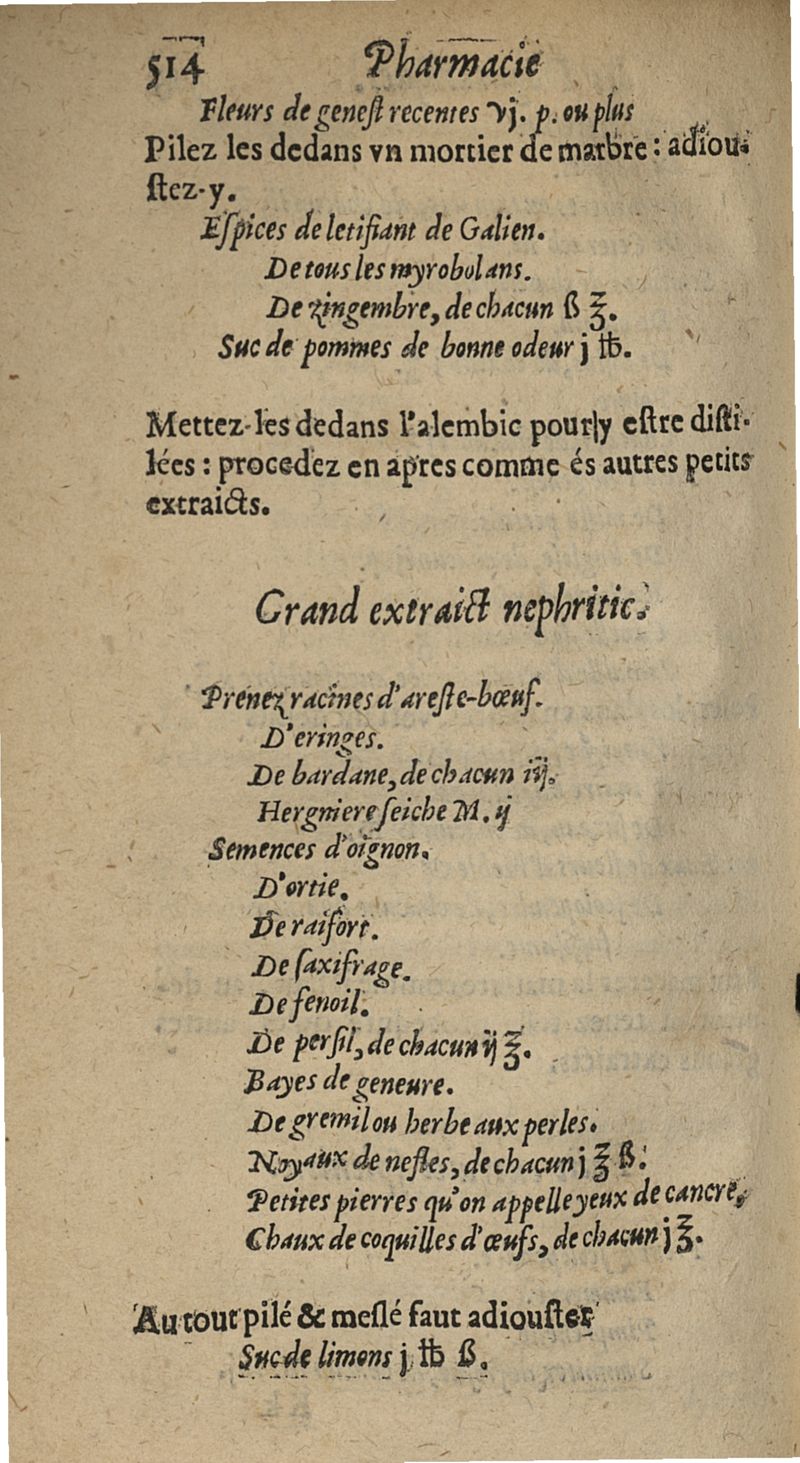 514 Pharmacie
Fleurs de genest recentes vj. p. ou plus
Pilez les dedans vn mortier de marbre : adiou-
stez-y.
Espices de letifiant de Galien.
De tous les myrobolans.
De zingembre, de chacun ß ℥.
Suc de pommes de bonne odeur j ℔.
Mettez-les dedans l'alembic pour y estre disti-
lées : procedez en apres comme és autres petits
extraicts.
Grand extraict nephritic.
Prenez racines d'areste-bœuf.
D'eringes.
De bardane, de chacun iij.
Hergniere seiche M. ij
Semences d'oignon.
D'ortie.
De raifort.
De saxifrage.
De fenoil.
De persil, de chacun ij ℥.
Bayes de geneure.
De gremil ou herbe aux perles.
Noyaux de nefles, de chacun j ℥ ß.
Petites pierres qu'on appelle yeux de cancre,
Chaux de coquilles d'œufs, de chacun j ℥.
Au tout pilé & meslé faut adiouster
Suc de limons j ℔ ß.